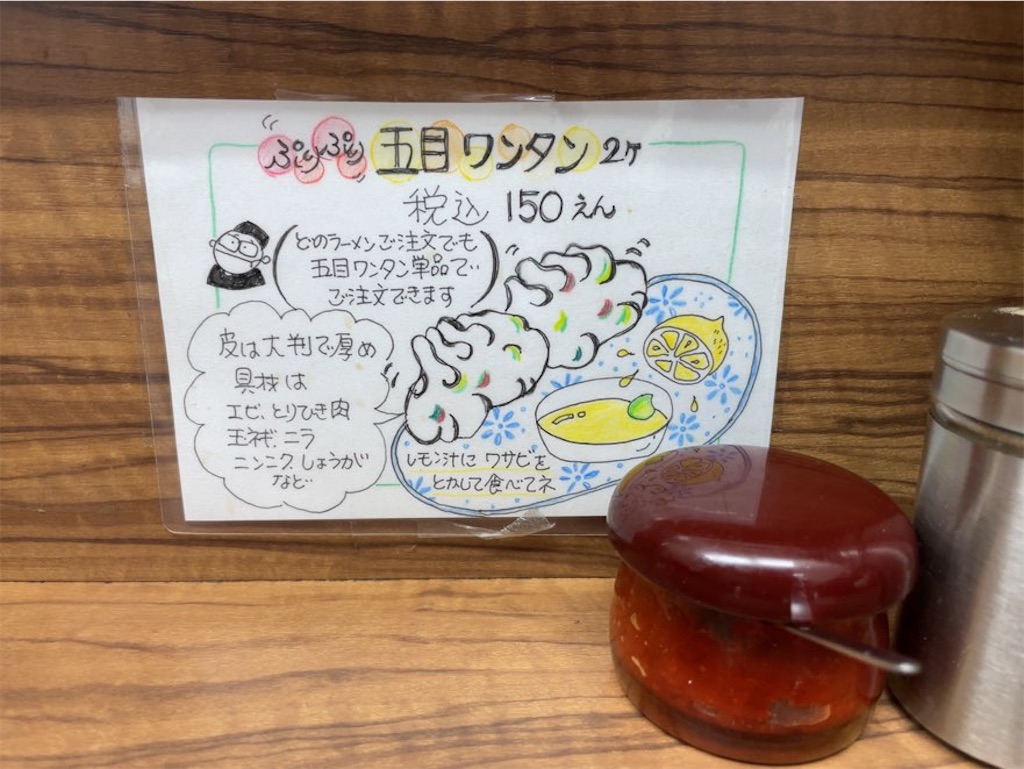 ぷりぷり 五目ワンタン 2ケ
税込 150えん
どのラーメンご注文でも
五目ワンタン単品で
ご注文できます
皮は大判で厚め
具材は
エビ、とりひき肉
玉ネギ、ニラ
ニンニク、しょうが
など
レモン汁に ワサビを
とかして食べてネ